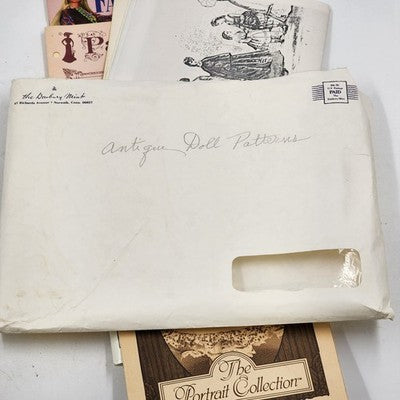 NA
P
the Danbury Mint
47 Richards Avenue • Norwalk, Conn. 06857
PAID
Antique Doll Patterns
The
Portrait Collection™